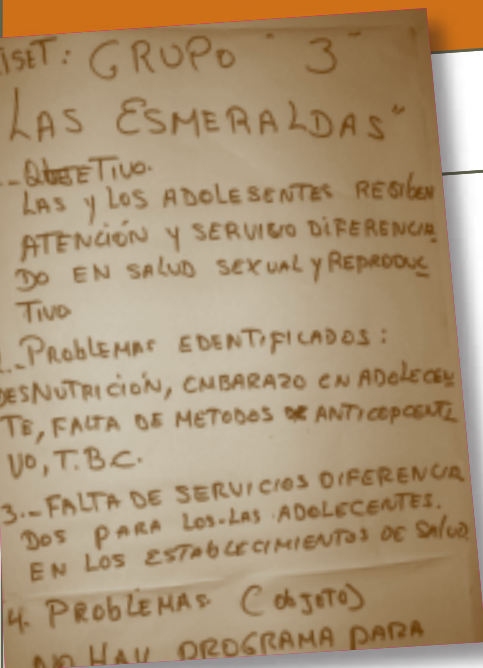 ISET: GRUPO "3"
LAS ESMERALDAS"
OBJETIVO.
LAS y LOS ADOLESENTES RESIBEN
ATENCIÓN Y SERVICIO DIFERENCIA
DO EN SALUD SEXUAL y REPRODUC
TIVO
PROBLEMAS EDENTIFICADOS:
DESNUTRICIÓN, EMBARAZO EN ADOLECEN
TE, FALTA DE METODOS DE ANTICEPCENTI
VO, T.B.C.
3.- FALTA DE SERVICIOS DIFERENCIA
DOS PARA LOS-LAS ADOLECENTES.
EN LOS ESTABLECIMIENTOS DE SALUD
4. PROBLEMAS (OBJETO)
NO HAY PROGRAMA PARA